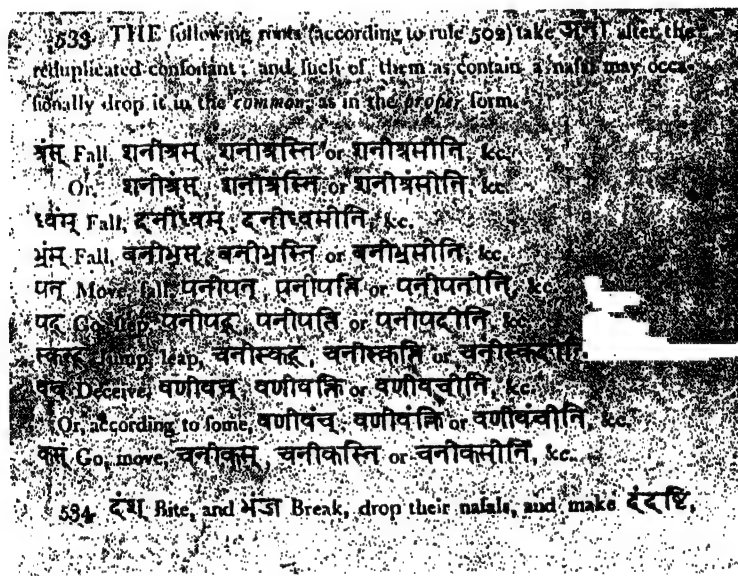 533. THE following roots (according to rule 502) take अनी after the
reduplicated consonant; and such of them as contain a nasal may occa-
sionally drop it in the common, as in the proper form.
श्रंस् Fall, शनीश्रस्, शनीश्रस्ति or शनीश्रसीति, &c.
Or, शनीश्रंस्, शनीश्रंस्ति or शनीश्रंसीति, &c.
ध्वंस् Fall, दनीध्वस्, दनीध्वसीति, &c.
भ्रंस् Fall, बनीभ्रस्, बनीभ्रस्ति or बनीभ्रसीति, &c.
पत् Move, fall, पनीपत्, पनीपत्ति or पनीपतीति, &c.
पद् Go, step, पनीपद्, पनीपत्ति or पनीपदीति, &c.
स्कन्द् Jump, leap, चनीस्कद्, चनीस्कत्ति or चनीस्कदीति,
Deceive, वणीवच्, वणीवक्ति or वणीवचीति, &c.
Or, according to some, वणीवंच्, वणीवंक्ति or वणीवंचीति, &c.
कस् Go, move, चनीकस्, चनीकस्ति or चनीकसीति, &c.
534. दंश् Bite, and भञ्ज Break, drop their nasals, and make दंदष्टि,